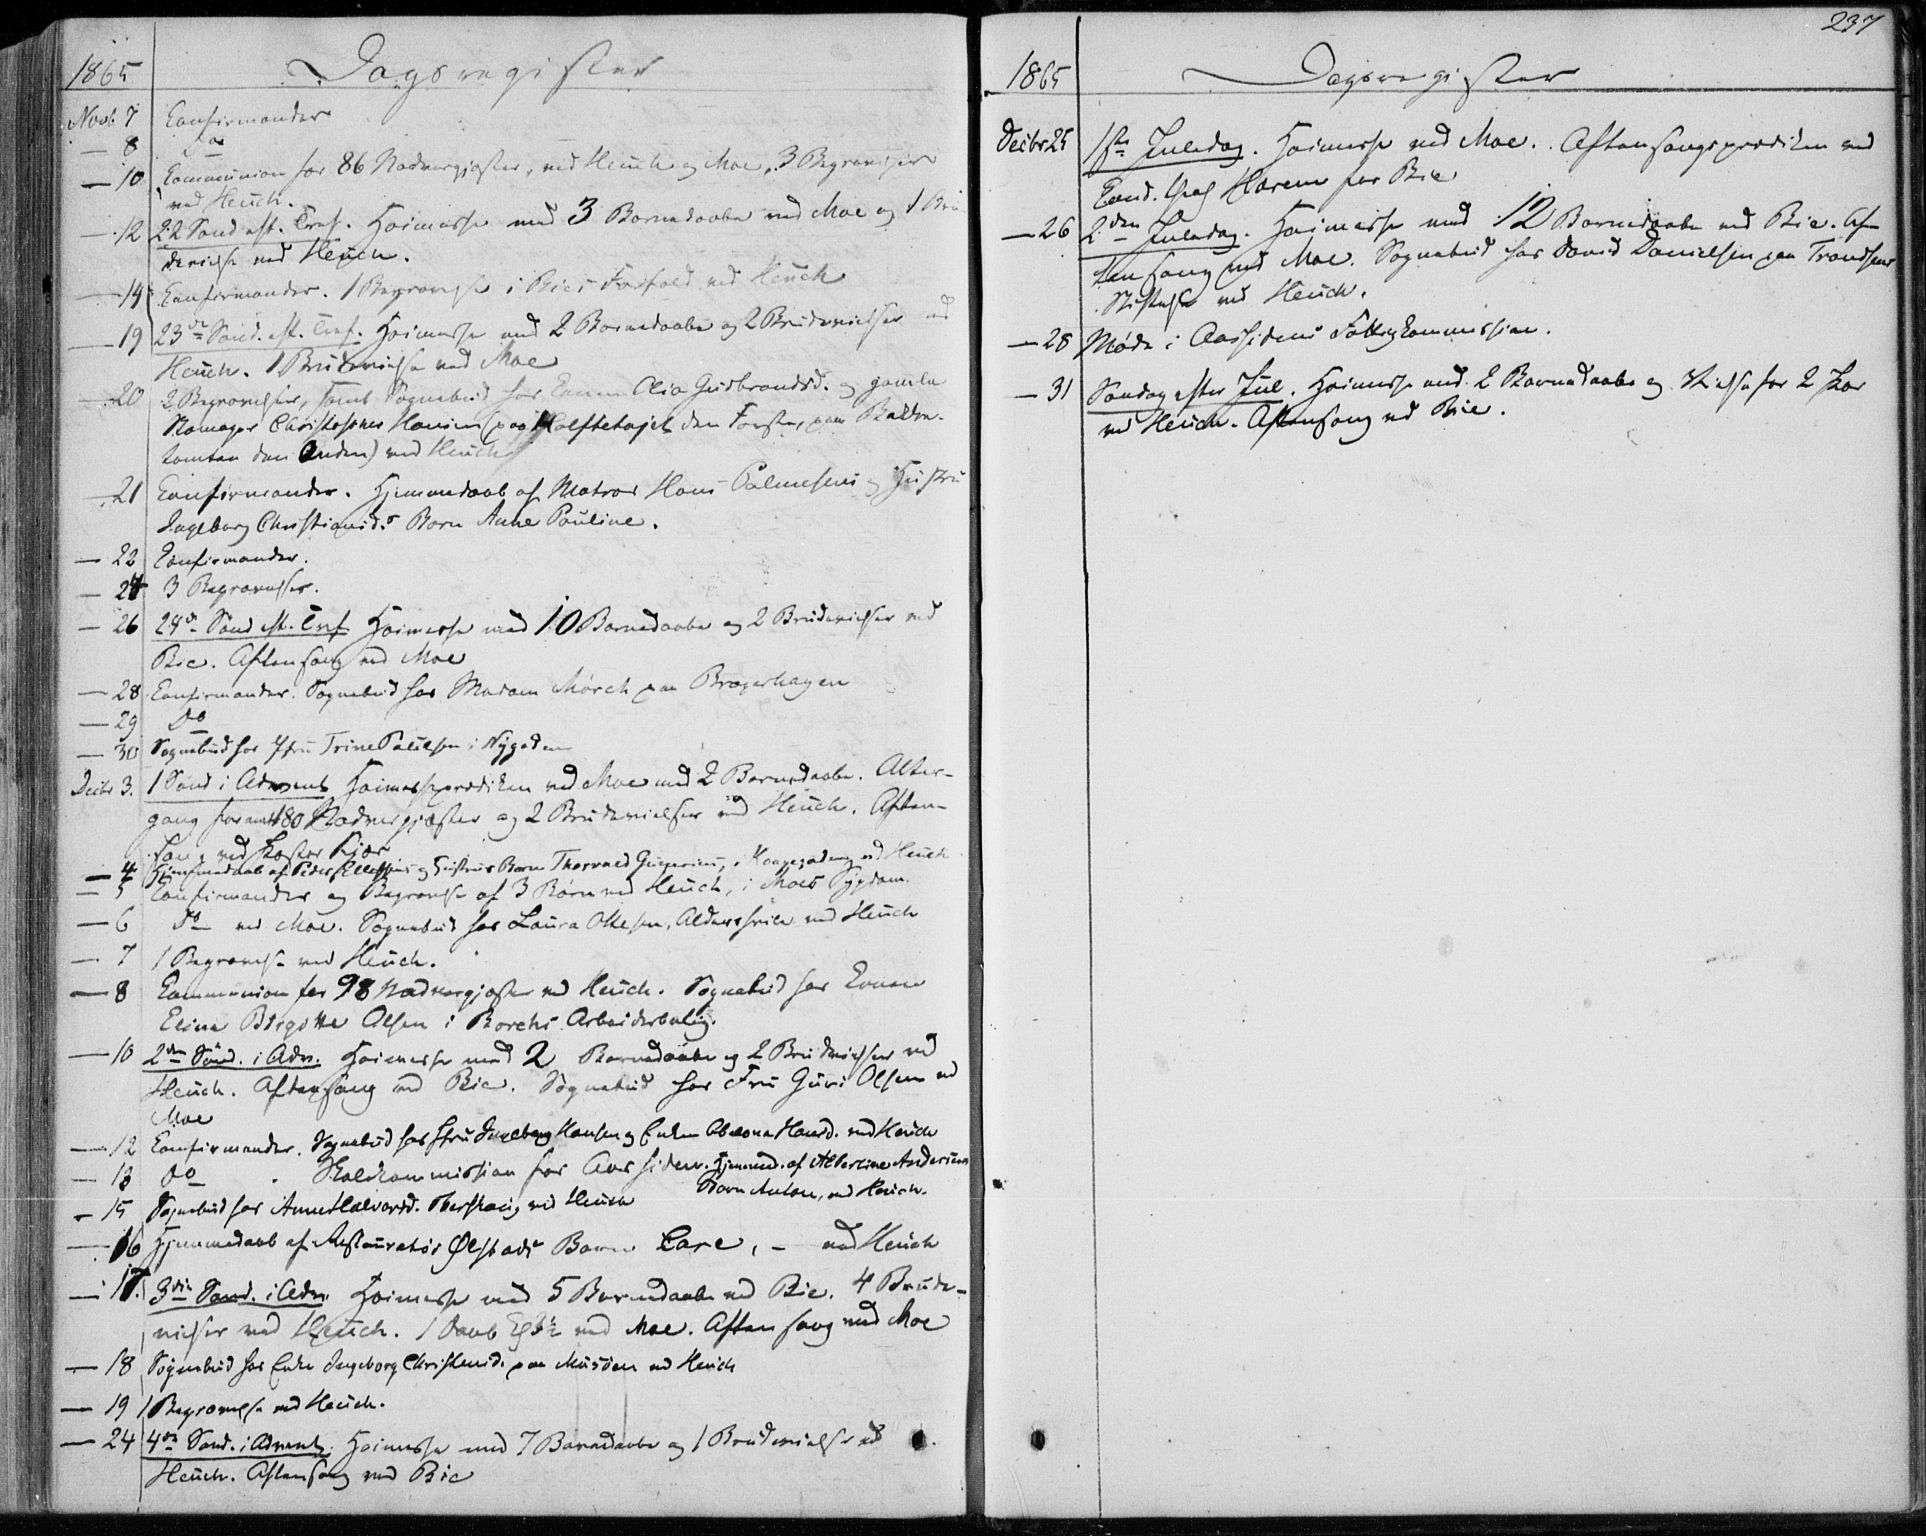 1865 Dagsregister
Novb 7 Confirmander
— 8 Do
— 10 Communion for 86 Nadvergjæster, ved Heuch og Moe, 3 Begravelser
ved Heuch.
— 12 22 Sønd eft. Tref. Høimesse med 3 Barnedaabe ved Moe og 1 Bru
devielse ved Heuch.
— 14 Confirmander. 1 Begravelse i Bies Forfald ved Heuch
— 19 23de Sønd. eft. Tref. Høimesse med 2 Barnedaabe og 2 Brudevielser ved
Heuch. 1 Brudevielse ved Moe
— 20 2 Begravelser, samt Sognebud hos Konen Olia Gudbrandsd. og gamle
Christopher Hansen (paa den Første, paa
tomten den Anden) ved Heuch
— 21 Confirmander. Hjemmedaab af Matros Hans Palmesens og Hustru
Ingeborg Christiansd.s Barn Anne Pauline.
— 22 Confirmander.
— 24 3 Begravelser.
— 26 24de Sønd eft. Tref Høimesse med 10 Barnedaabe og 2 Brudevielser ved
Bie. Aftensang ved Moe
— 28 Confirmander. Sognebud hos Madam Mørch paa Bragerhagen
— 29 Do
— 30 Sognebud hos Jfru Trine Paulsen i Nygaden
Decbr 3. 1 Sønd i Advent Høimesseprædiken ved Moe med 2 Barnedaabe. Alter-
gang for omt 180 Nadvergjæster og 2 Brudevielser ved Heuch. Aften-
sang ved Pastor Kjær
— 4 Hjemmedaab af Peder og Hustrus Barn Thorvald i Kongegaden ved Heuch
— 5 Confirmander og Begravelse af 3 Børn ved Heuch, i Moes Sygdom.
— 6 Do ved Moe. Sognebud hos Laura Ottesen, Aldershvile ved Heuch
— 7 1 Begravelse ved Heuch.
— 8 Communion for 98 Nadvergjæster ved Heuch. Sognebud hos Konen
Eline Birgitte Olsen i Borchs Arbeiderbolig.
— 10 2den Sønd. i Adv. Høimesse med 2 Barnedaabe og 2 Brudevielser ved
Heuch. Aftensang ved Bie. Sognebud hos Fru Guri Olsen ved
Moe
— 12 Confirmander. Sognebud hos Hfru Ingeborg Hansen og Enken Hansd. ved Heuch
— 13 Do. Skolekommission for Aarsiden. Hjemmed. af Albertine Andersens
Barn Anton, ved Heuch.
— 15 Sognebud hos Anne Halvorsd. ved Heuch
— 16 Hjemmedaab af Restauratør Ølstads Barn Care, – ved Heuch
— 17. 3die Sønd. i Adv. Høimesse med 5 Barnedaabe ved Bie. 4 Brude-
vielser ved Heuch. 1 Daab ved Moe. Aftensang ved Moe
— 18 Sognebud hos Enke Ingeborg Christensd. paa Musøen ved Heuch
— 19 1 Begravelse ved Heuch.
— 24 4de Sønd. i Advent. Høimesse med 7 Barnedaabe og 1 Brudevielse ved
Heuch. Aftensang ved Bie
237
1865 Dagsregister
Decbr 25 1ste Juledag. Høimesse ved Moe. Aftensangsprædiken ved
Cand. theol Harem for Bie
— 26 2den Juledag. Høimesse med 12 Barnedaabe ved Bie. Af-
tensang ved Moe. Sognebud hos David Danielsen paa Trondsens
Stiftelse ved Heuch.
— 28 Møde i Aassidens Fattigkommission.
— 31 Søndag efter Jul. Høimesse med 2 Barnedaabe og Vielse for 2 Par
ved Heuch. Aftensang ved Bie.